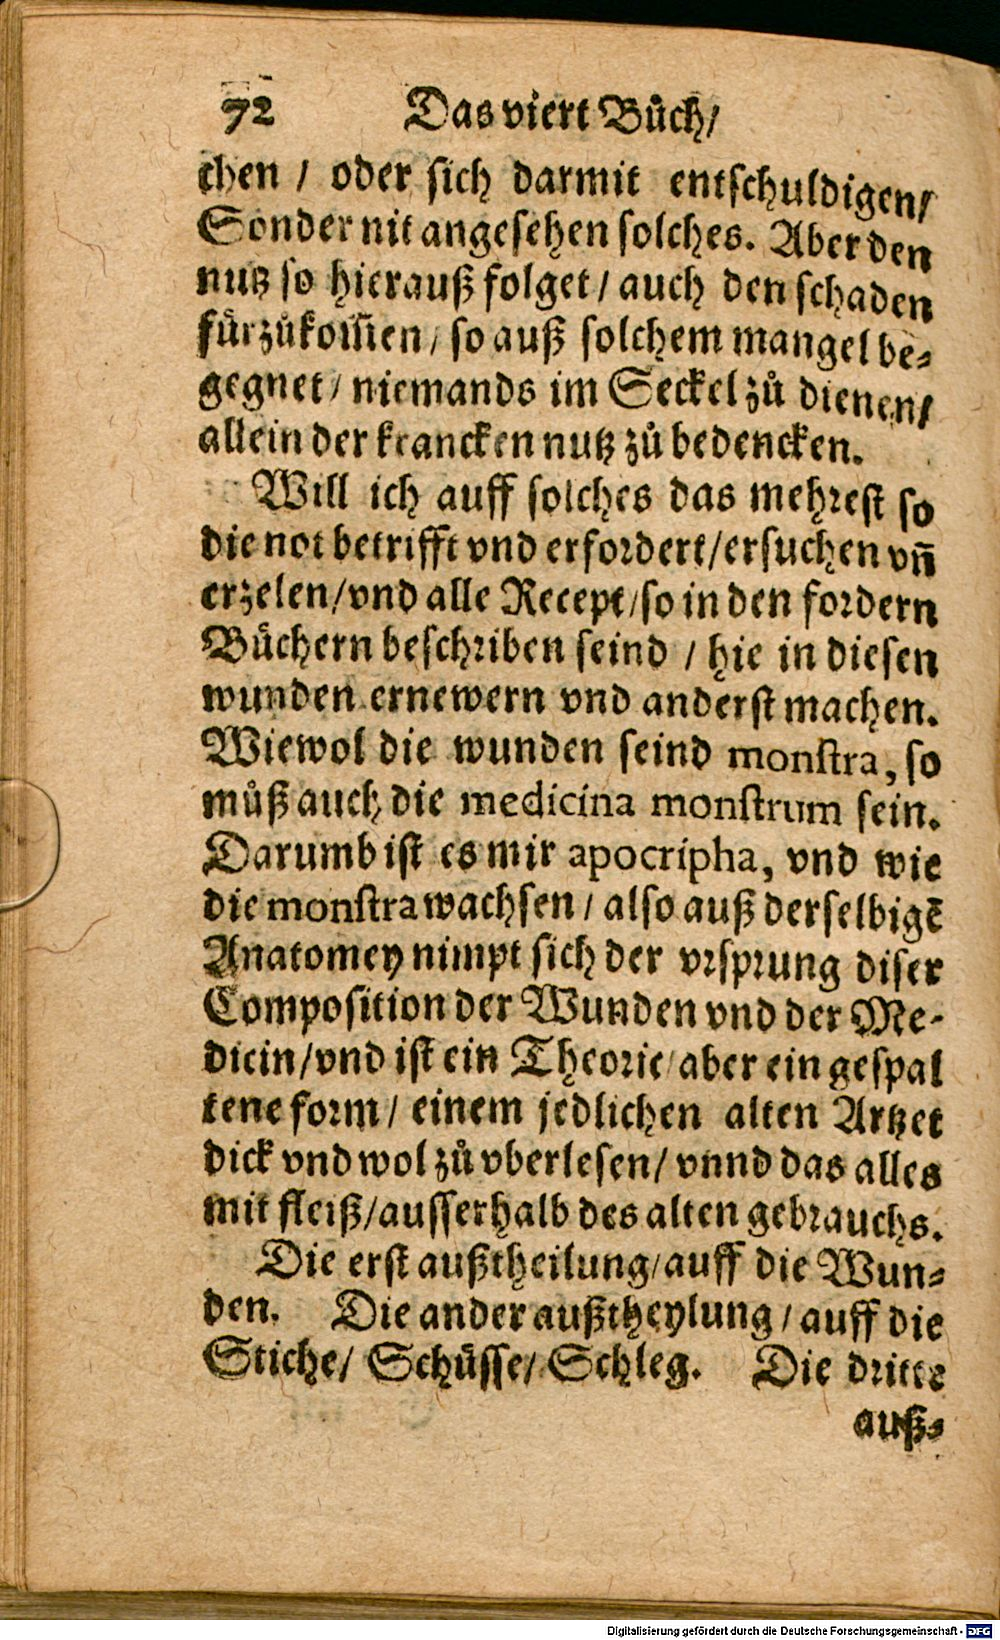 72 Das viert Bůch/
chen / oder sich darmit entschuldigen/
Sonder nit angesehen solches. Aber den
nutz so hierauß folget / auch den schaden
fürzůkom̃en / so auß solchem mangel be-
gegnet / niemands im Seckel zů dienen/
allein der krancken nutz zů bedencken.
Will ich auff solches das mehrest so
die not betrifft vnd erfordert/ersuchen vñ
erzelen/vnd alle Recept/so in den fordern
Büchern beschriben seind / hie in diesen
wunden ernewern vnd anderst machen.
Wiewol die wunden seind monstra, so
můß auch die medicina monstrum sein.
Darumb ist es mir apocripha, vnd wie
die monstra wachsen / also auß derselbigē
Anatomey nimpt sich der vrsprung diser
Composition der Wunden vnd der Me-
dicin/vnd ist ein Theorie/aber ein gespal
tene form/ einem jedlichen alten Artzet
dick vnd wol zů vberlesen/ vnnd das alles
mit fleiß/ausserhalb des alten gebrauchs.
Die erst außtheilung/auff die Wun-
den. Die ander außtheylung / auff die
Stiche/ Schüsse/ Schleg. Die dritte
auß-
Digitalisierung gefördert durch die Deutsche Forschungsgemeinschaft - DFG